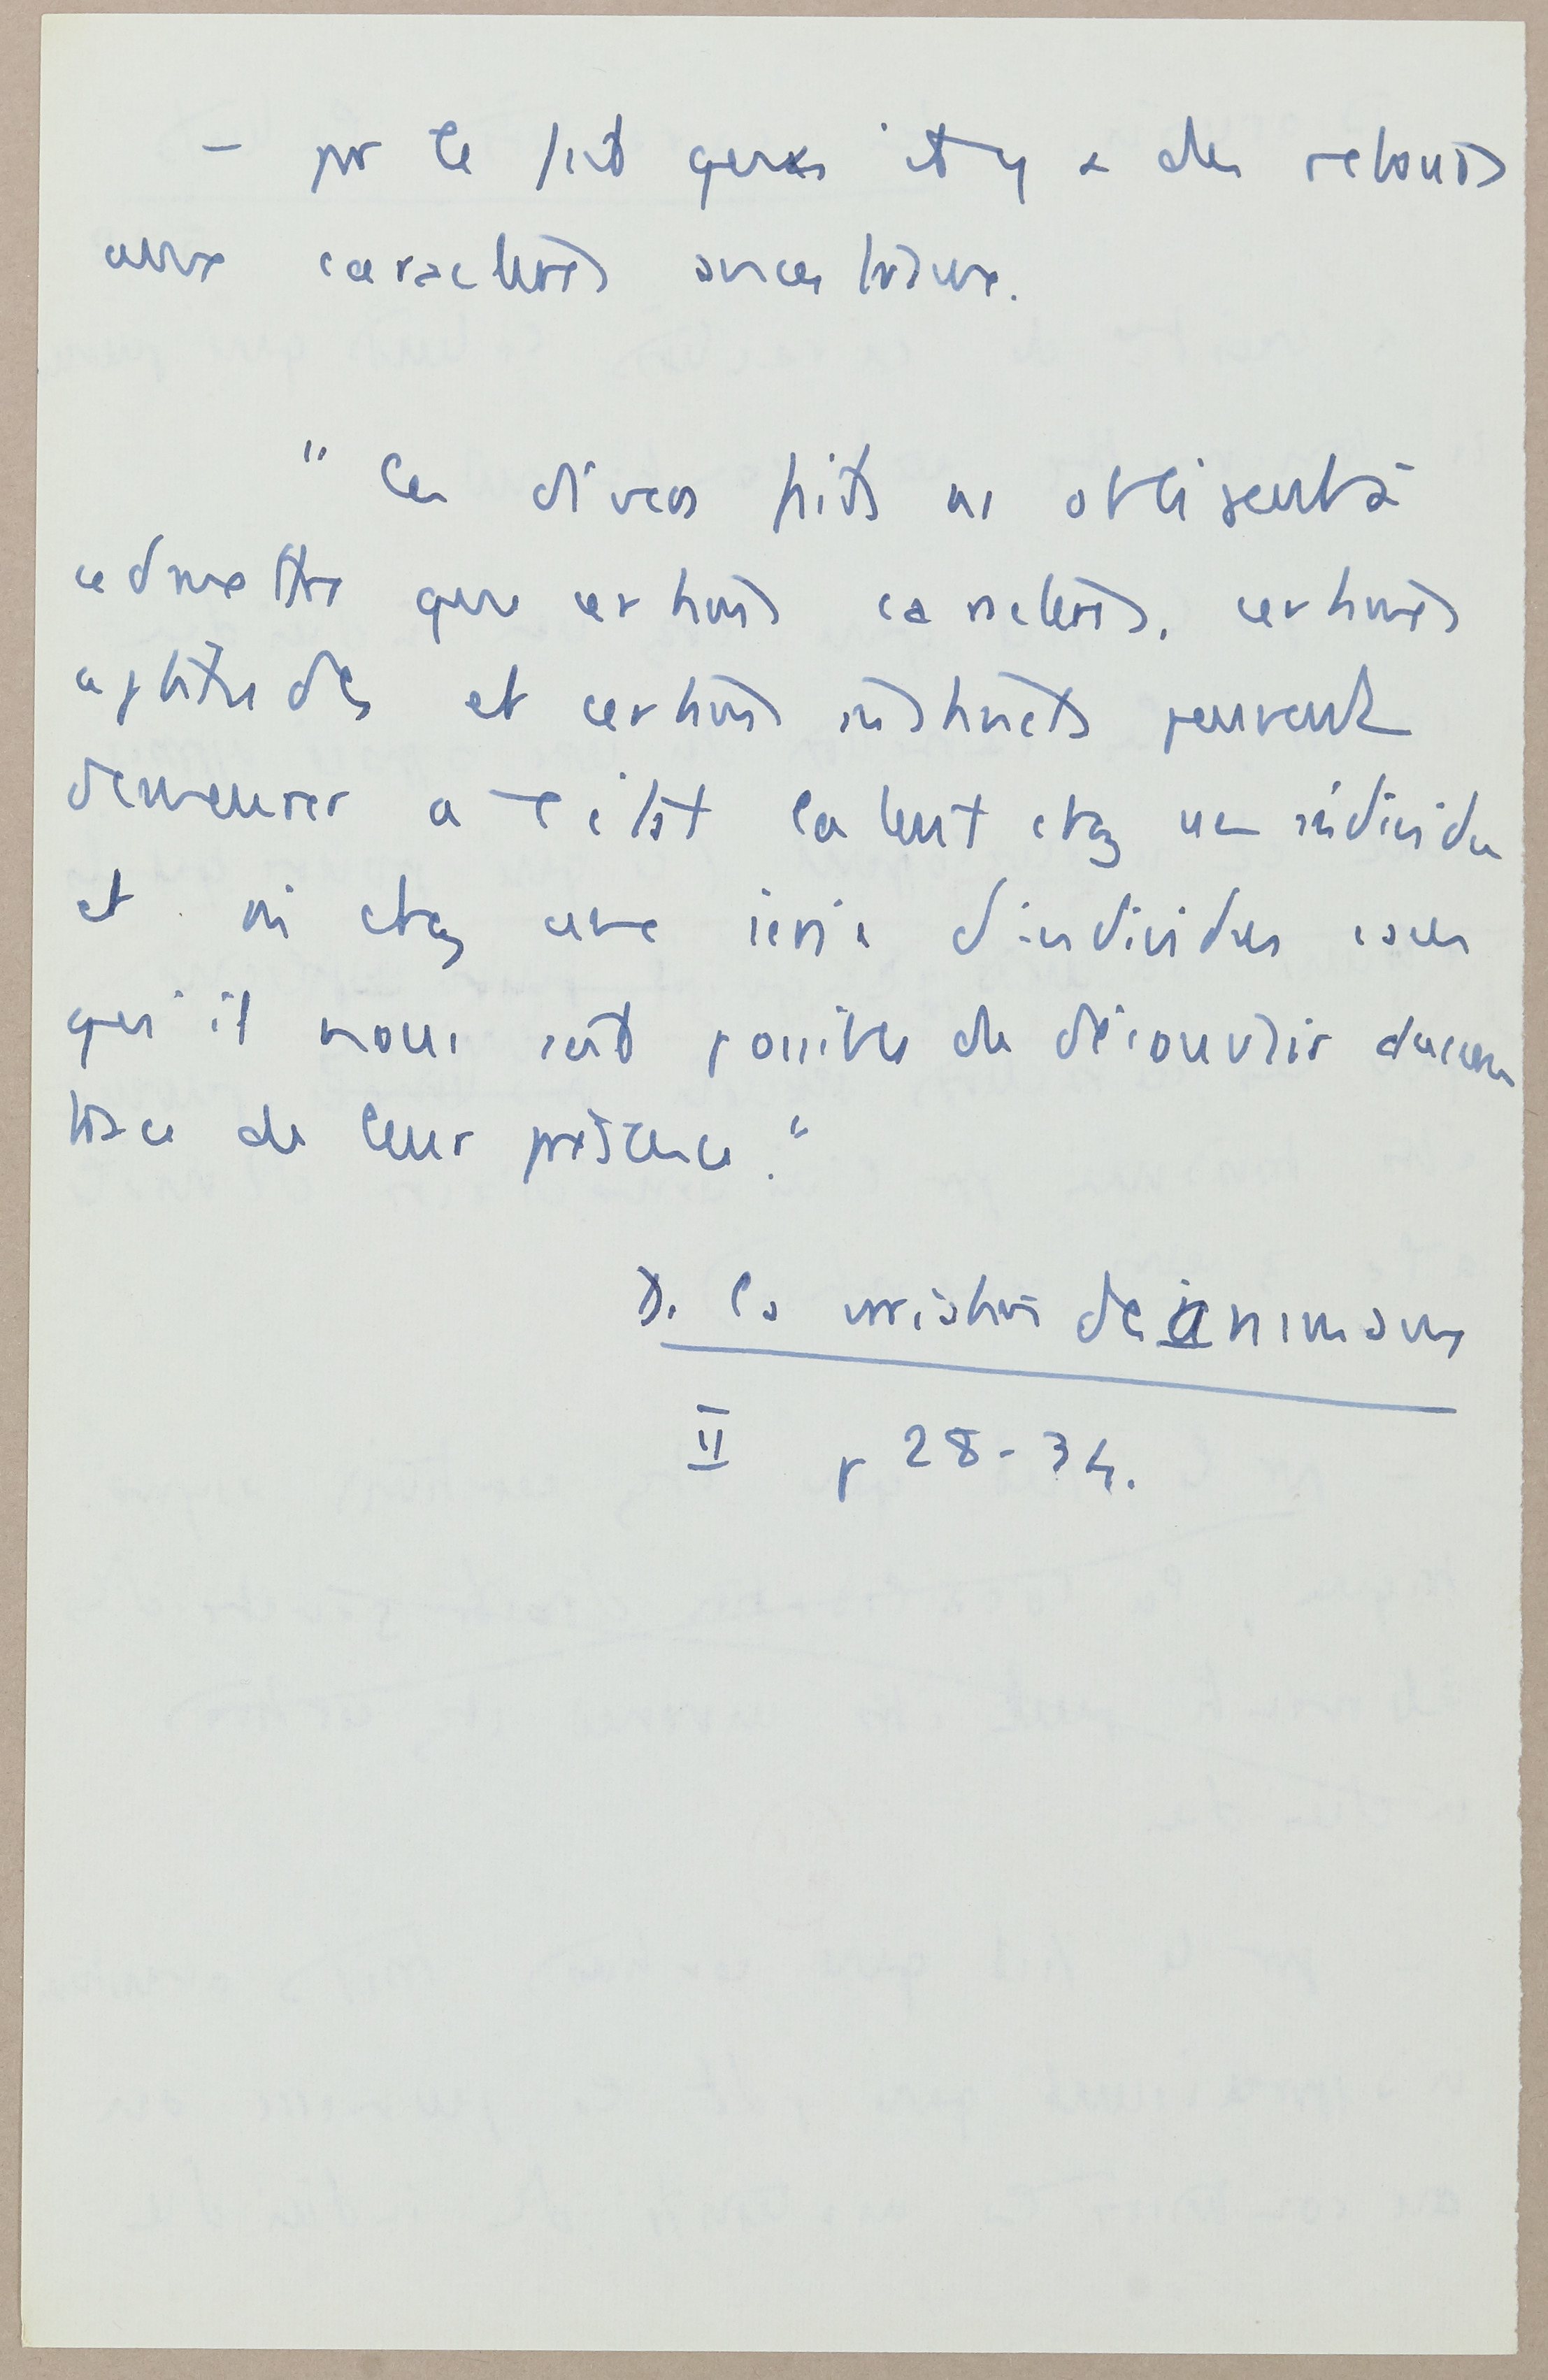 - par le fait que il y a des retours
aux caractères ancestraux.
" Ces divers faits ns obligent à
admettre que certains caractères, certaines
aptitudes et certains instincts peuvent
demeurer à l'état latent chez un individu
et m chez une série d'individus sans
qu'il nous soit possible de découvrir aucune
trace de leur présence."
D. La variation des animaux
II p 28-34.